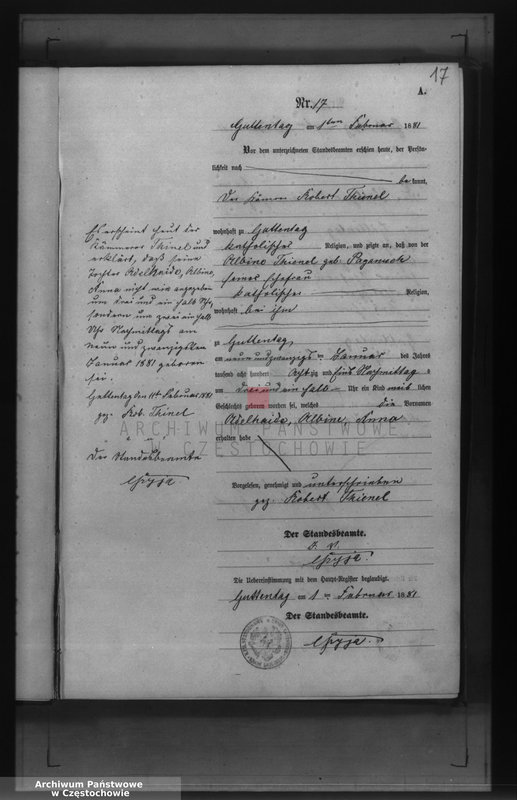 17
A.
Nr. 17
Guttentag am 1ten Februar 1881
Vor dem unterzeichneten Standesbeamten erschien heute, der Persön-
lichkeit nach
be kannt,
Der Kämmerer Robert Thienel
wohnhaft zu Guttentag
katholischer Religion, und zeigte an, daß von der
Albine Thienel geb.
seiner Ehefrau
katholischer Religion,
wohnhaft bei ihm
zu Guttentag,
am neun und zwanzigsten Januar des Jahres
tausend acht hundert Achtzig und Eins Nachmittag s
um drei und ein halb Uhr ein Kind weib lichen
Geschlechts geboren worden sei, welches die Vornamen
Adelhaide, Albine, Anna
erhalten habe
Vorgelesen, genehmigt und unterschrieben
gez. Robert Thienel
Der Standesbeamte.
Die Uebereinstimmung mit dem Haupt-Register beglaubigt.
Guttentag am 1ten Februar 1881
Der Standesbeamte.
Es erscheint heut der
Kämmerer Thinel und
erklärt, daß seine
Tochter Adelhaide, Albine,
Anna nicht wie angegeben
um drei und ein halb Uhr
sondern um zwei ein halb
Uhr Nachmittags am
neun und zwanzigsten
Januar 1881 geboren
sei.
Guttentag den Februar 1881
gez. Rob. Thinel
Der Standesbeamte
ARCHIWUM PAŃSTWOWE
CZĘSTOCHOWIE
Archiwum Państwowe
w Częstochowie